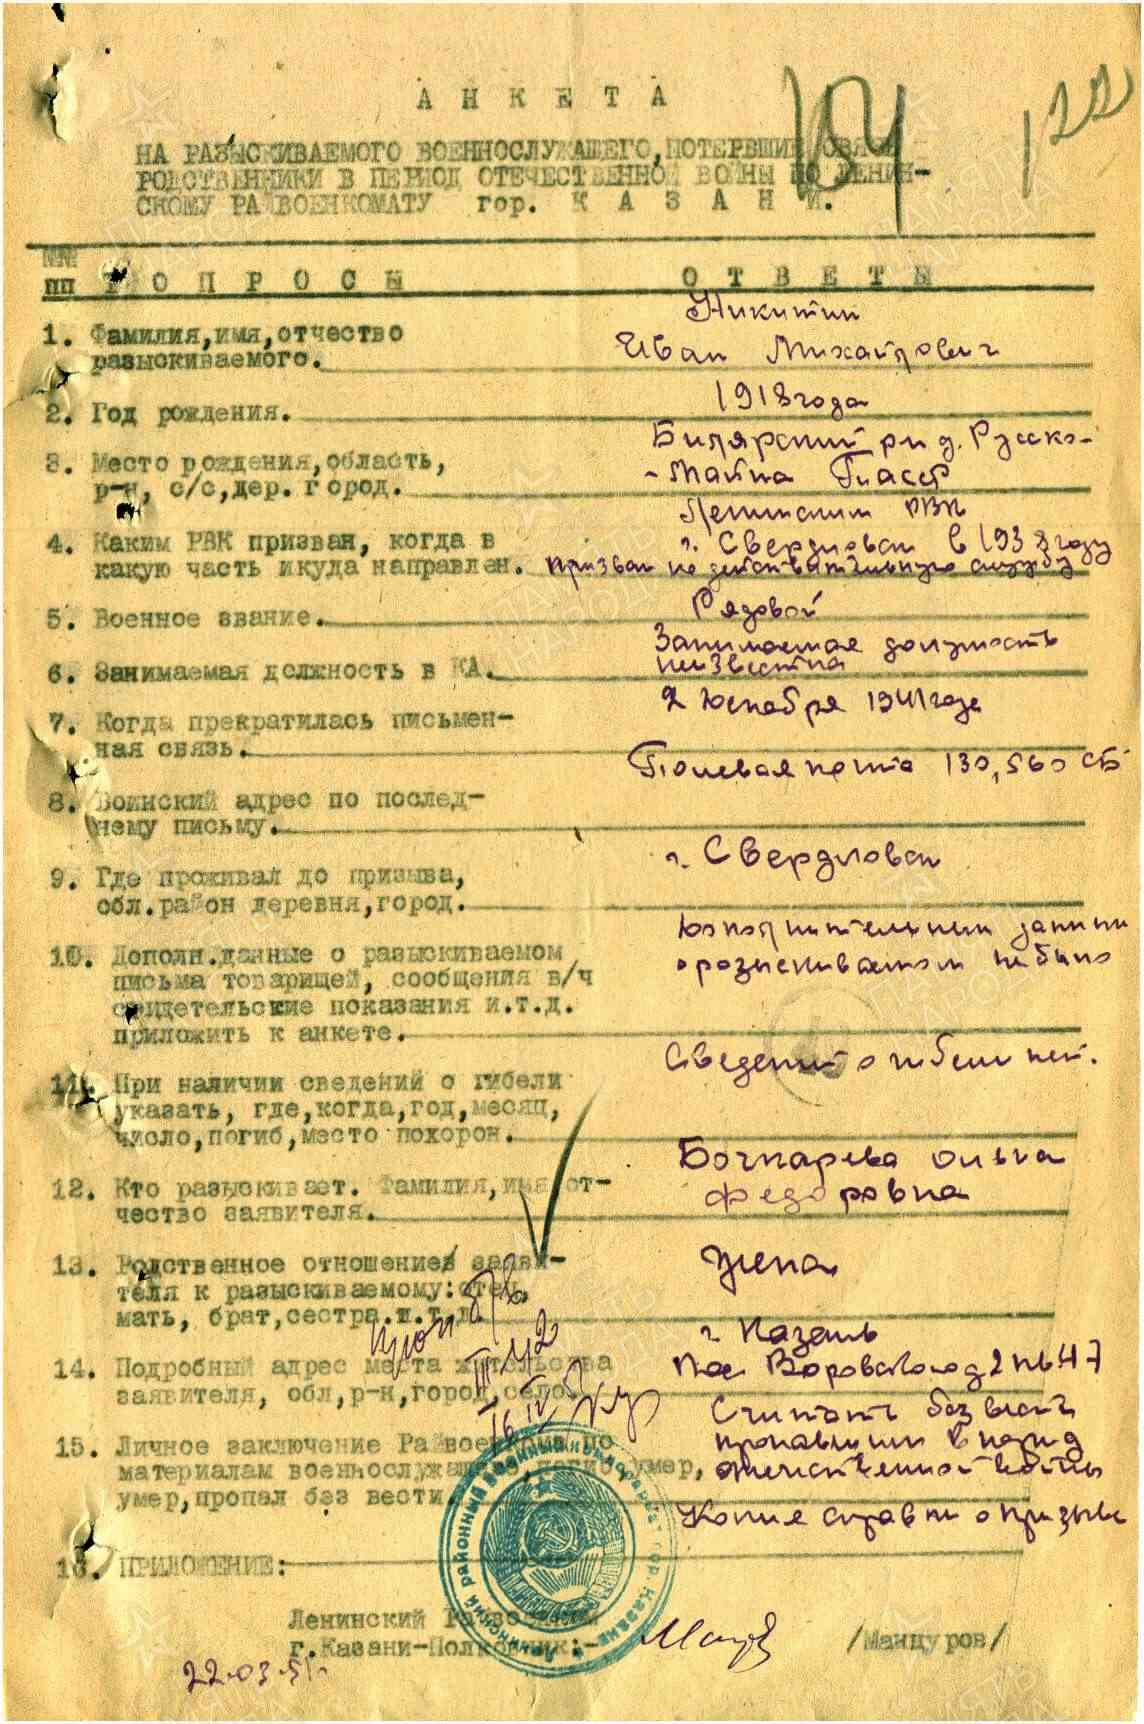 184
122
АНКЕТА
НА РАЗЫСКИВАЕМОГО ВОЕННОСЛУЖАЩЕГО, ПОТЕРВШИЕ СВЯЗЬ
РОДСТВЕННИКИ В ПЕРИОД ОТЕЧЕСТВЕННОЙ ВОЙНЫ ПО ЛЕНИН-
СКОМУ РАЙВОЕНКОМАТУ гор. КАЗАНИ.
№№
пп ВОПРОСЫ ОТВЕТЫ
Никитин
1. Фамилия,имя,отчество
разыскиваемого. Иван Михайлович
2. Год рождения. 1918 года
Билярский р-н д. Русско-
3. Место рождения,область,
р-н, с/с,дер. город. -Майна Тасср
Ленинским РВК
4. Каким РВК призван, когда в г. Свердловск в 1938 году
какую часть и куда направлен. призван на действительную службу
5. Военное звание. Рядовой
Занимаемая должность
6. Занимаемая должность в КА. неизвестна
7. Когда прекратилась письмен-
ная связь. 2 декабря 1941 года
Полевая почта 130,560 СБ
8. Воинский адрес по послед-
нему письму.
9. Где проживал до призыва, г. Свердловск
обл.район деревня,город.
10. Дополн.данные о разыскиваемом
письма товарищей, сообщения в/ч
свидетельские показания и.т.д.
приложить к анкете.
о разыскиваемом не было
Сведений о гибели нет.
11. При наличии сведений о гибели
указать, где,когда,год,месяц,
число,погиб,место похорон.
12. Кто разыскивает. Фамилия,имя от-
чество заявителя.
Бочкарева Ольга
Федоровна
13. Родственное отношение заяви-
теля к разыскиваемому:отец,
мать, брат,сестра.и.т.д.
жена
14. Подробный адрес места жительства
заявителя, обл,р-н,город,село.
г. Казань
Воровского д 2 кв 47
15. Личное заключение Райвоенкома по
материалам военнослужащего,погиб,умер,
умер,пропал без вести.
Считать без вести
пропавшим в период
отечественной войны
Копия справки о призыве
16. ПРИЛОЖЕНИЕ:
Ленинский Райвоенком
г.Казани-Полковник:- /Манцуров/
22.03.51г.